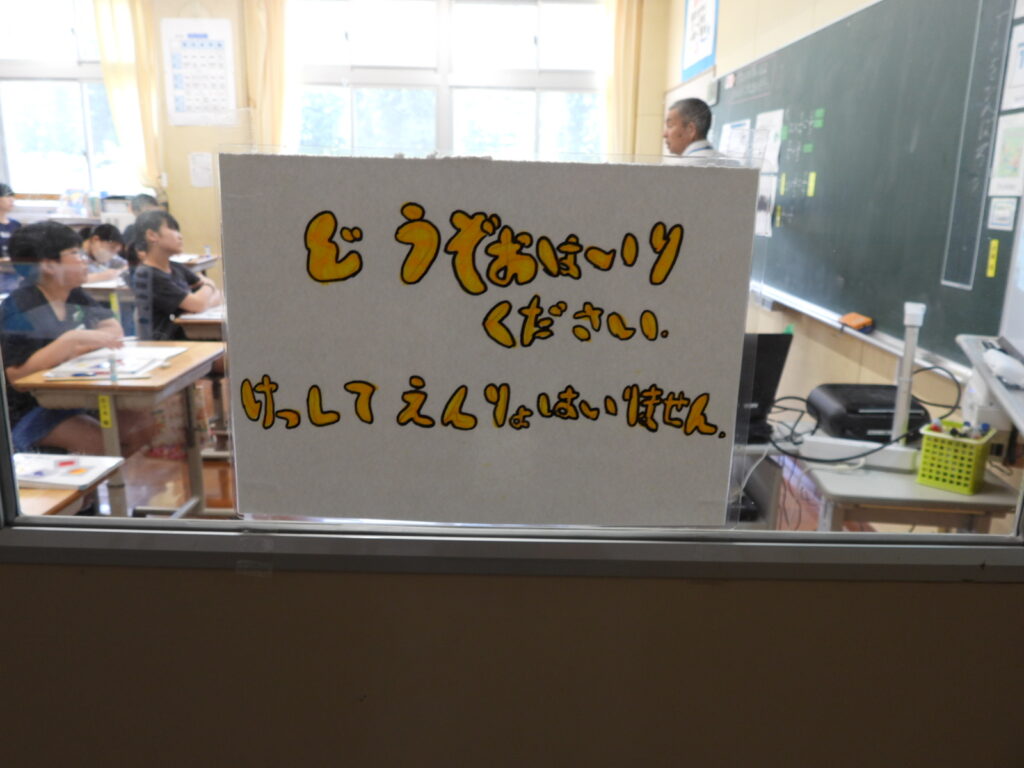 どうぞおはいり
ください.
けっして えんりょはいりません.